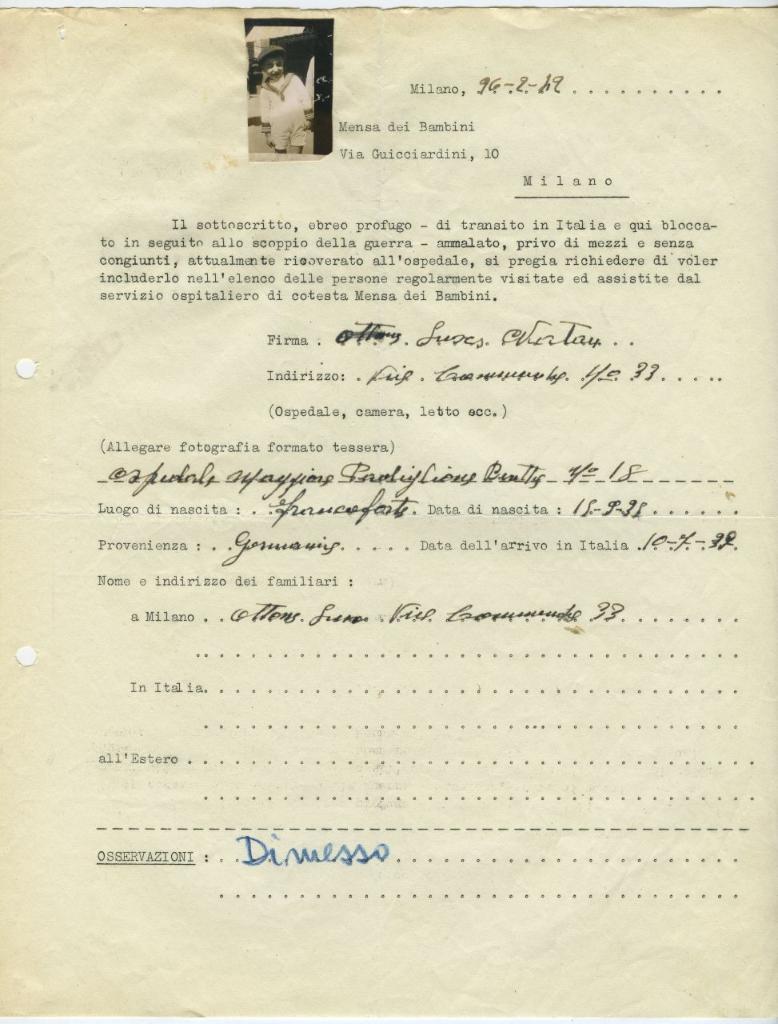 Milano, 26-2-42 . . . . . . . . . .
Mensa dei Bambini
Via Guicciardini, 10
Milano
Il sottoscritto, ebreo profugo - di transito in Italia e qui blocca-
to in seguito allo scoppio della guerra - ammalato, privo di mezzi e senza
congiunti, attualmente ricoverato all'ospedale, si pregia richiedere di voler
includerlo nell'elenco delle persone regolarmente visitate ed assistite dal
servizio ospitaliero di cotesta Mensa dei Bambini.
Firma .
Indirizzo: . No 33 . . . . .
(Ospedale, camera, letto ecc.)
(Allegare fotografia formato tessera)
Ospedale Maggiore Padiglione No 18
Luogo di nascita : . . Francoforte. Data di nascita : 18-9-38 . . . . . .
Provenienza : . . Germania . . . . . Data dell'arrivo in Italia . 10-7-39.
Nome e indirizzo dei familiari :
a Milano . . 33 . . . . . . . .
In Italia. . . . . . . . . . . . . . . . . . . . . .
all'Estero . . . . . . . . . . . . . . . . . . . . . .
OSSERVAZIONI : . . Dimesso . . . . . . . . . . . . . .